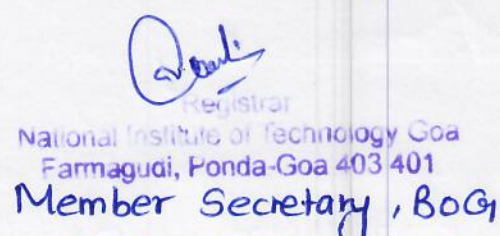 Registrar
National Institute of Technology Goa
Farmagudi, Ponda-Goa 403 401
Member Secretary, BoG